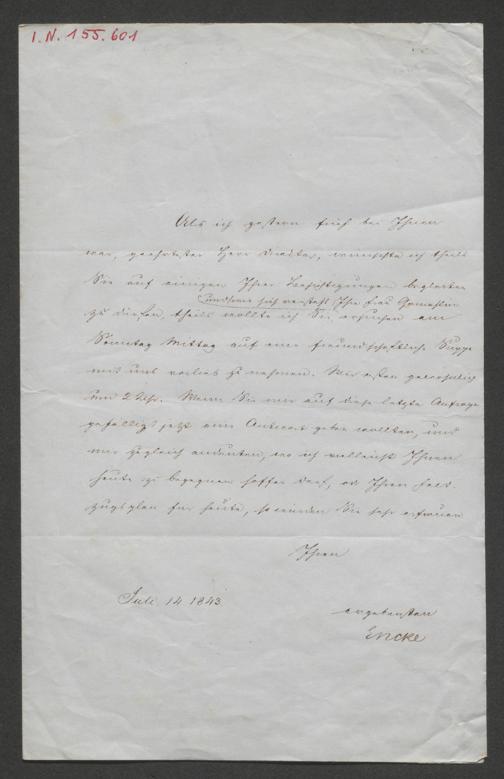 I.N. 155.601
Als ich gestern früh bei Ihnen
war, geehrtester Herr Direktor, wünschte ich theils
Sie auf einigen Ihrer Besichtigungen begleiten
(und wie sich versteht Ihre Frau Gemahlin
zu dürfen, theils wollte ich Sie ersuchen am
Sonntag Mittag auf eine freundschaftliche Suppe
mit uns vorlieb zu nehmen. Wir essen gewöhnlich
um 2 Uhr. Wenn Sie mir auf diese letzte Anfrage
gefälligst jetzt eine Antwort geben wollten, und
mir zugleich andeuten, wo ich vielleicht Ihnen
heute zu begegnen hoffen darf, od Ihren Feld-
zugsplan für heute, so würden Sie sehr erfreuen
Ihren
Juli 14 1843
ergebensten
Encke